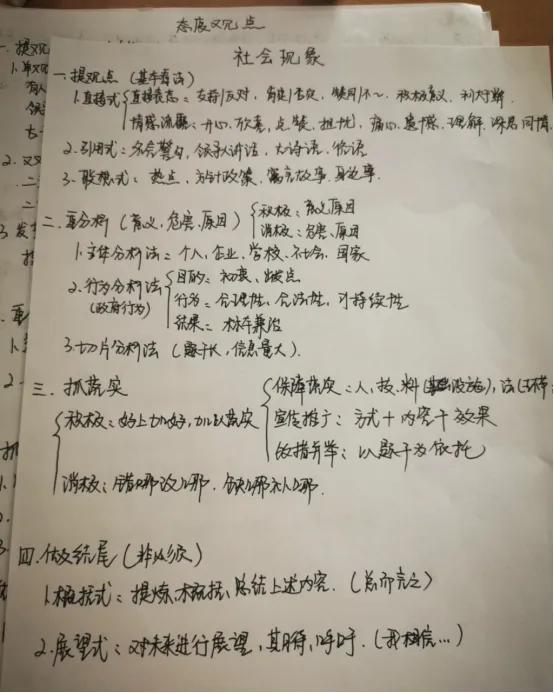 态度观点
社会现象
一.提观点(基本看法)
1.直接式 直接表态:支持/反对,肯定/否定,积极意义,利大于弊
情感流露:开心,欣喜,点赞,担忧,痛心,遗憾,理解,深表同情
2.引用式:名言警句,领导人讲话,大诗语,俗语
3.联想式:热点,方针政策,寓言故事,身边事.
二.重分析(意义,危害,原因) 积极:意义原因
消极:危害,原因
1.主体分析法:个人,企业,学校,社会,国家
2.行为分析法 目的:初衷,出发点
(政府行为) 行为:合理性,合法性,可持续性
结果:标本兼治
3.切片分析法(题干长,信息量大).
三.抓落实
保障落实:人,技,料(基础设施),法
积极:好上加好,加以落实 宣传推广:方式+内容+效果
多措并举:以题干为依托
消极:错哪改哪.缺哪补哪.
四.做好结尾(非必须)
1.概括式:提炼,概括,总结上述内容.(总而言之)
2.展望式:对未来进行展望,期盼,呼吁.(我相信...)